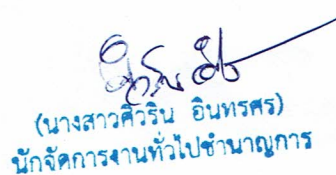 (นางสาวศิวริน อินทรศร)
นักจัดการงานทั่วไปชำนาญการ